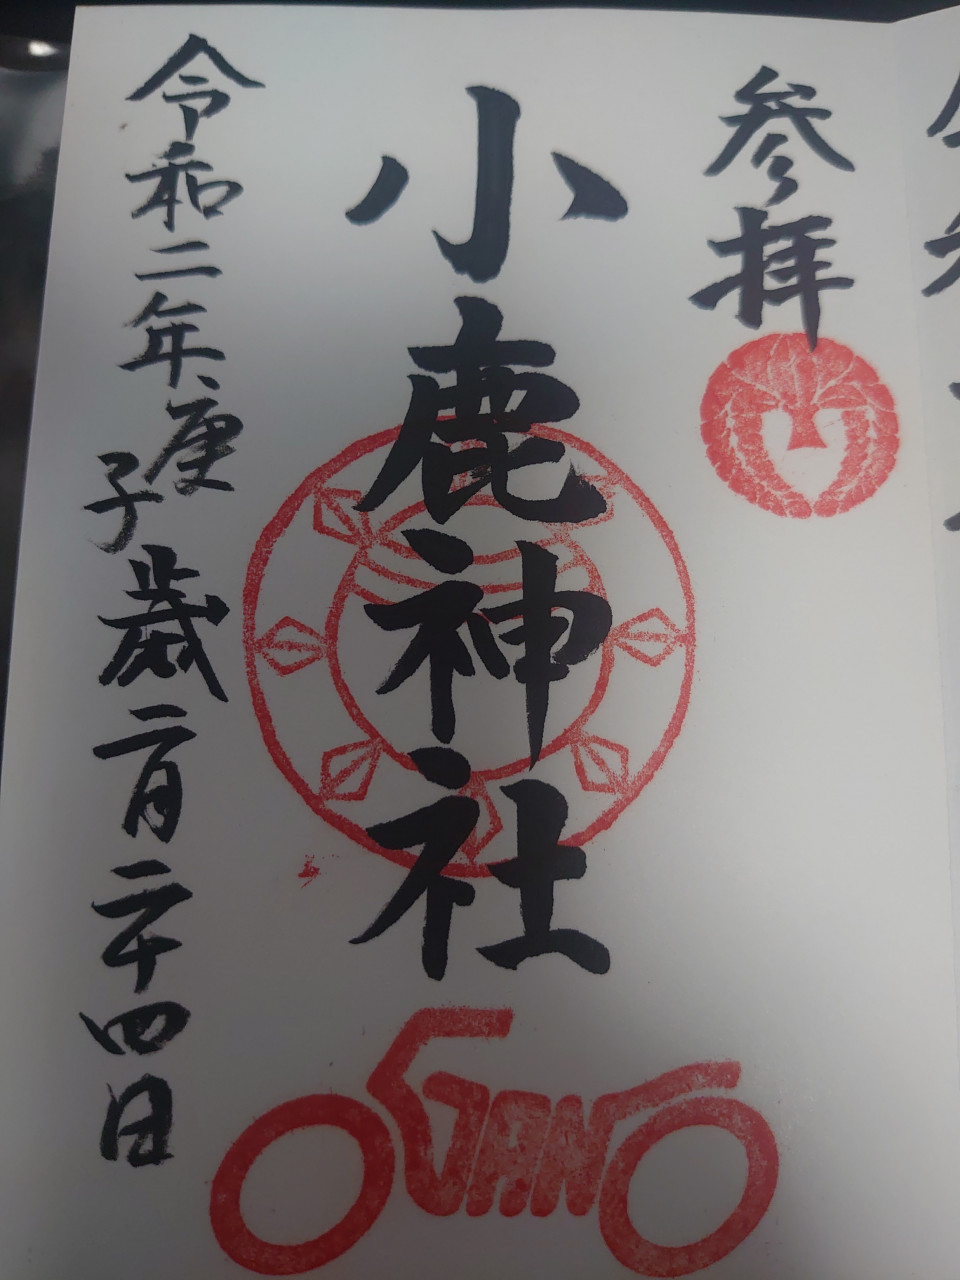 参拝
小鹿神社
令和二年庚子歳二月二十四日
OGANO